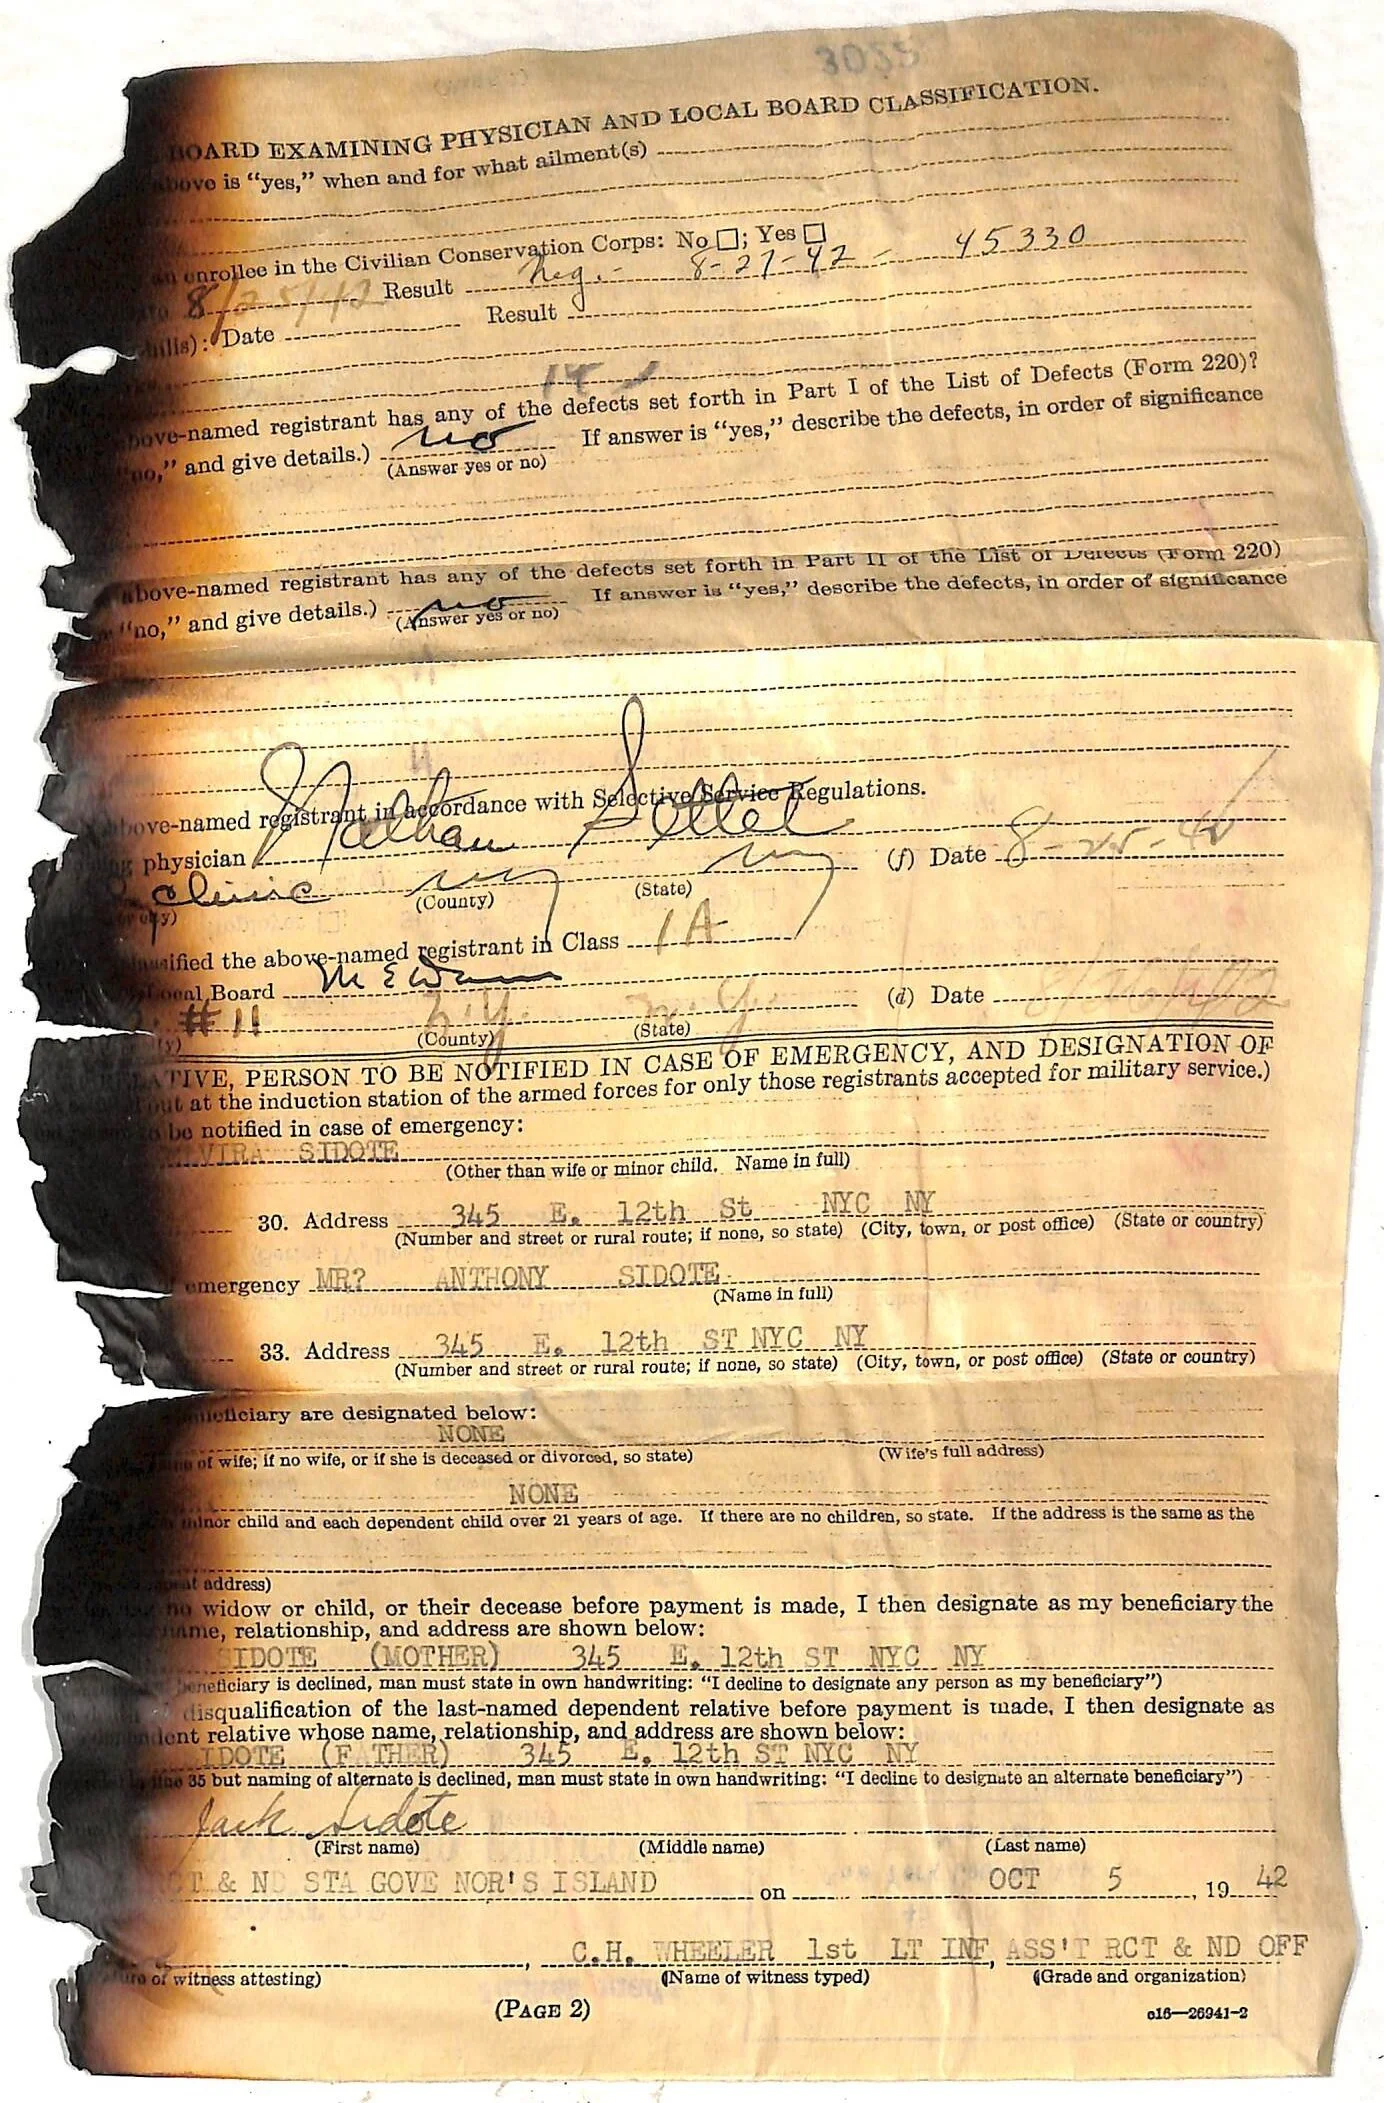 3055
BOARD EXAMINING PHYSICIAN AND LOCAL BOARD CLASSIFICATION.
above is "yes," when and for what ailment(s)
enrollee in the Civilian Conservation Corps: No ☐; Yes ☐
8/25/42 Result Neg. - 8-27-42 - 45330
Date Result
14
above-named registrant has any of the defects set forth in Part I of the List of Defects (Form 220)?
"no," and give details.) no If answer is "yes," describe the defects, in order of significance
(Answer yes or no)
above-named registrant has any of the defects set forth in Part II of the List of Defects (Form 220)
"no," and give details.) no If answer is "yes," describe the defects, in order of significance
(Answer yes or no)
above-named registrant in accordance with Selective Service Regulations.
physician Nathan (f) Date 8-25-42
clinic NY NY
(County) (State)
classified the above-named registrant in Class 1A
Local Board (d) Date
#11 N.Y. N.Y.
(County) (State)
RELATIVE, PERSON TO BE NOTIFIED IN CASE OF EMERGENCY, AND DESIGNATION OF
out at the induction station of the armed forces for only those registrants accepted for military service.)
be notified in case of emergency:
LVIRA SIDOTE
(Other than wife or minor child. Name in full)
30. Address 345 E. 12th St NYC NY
(Number and street or rural route; if none, so state) (City, town, or post office) (State or country)
emergency MR? ANTHONY SIDOTE
(Name in full)
33. Address 345 E. 12th ST NYC NY
(Number and street or rural route; if none, so state) (City, town, or post office) (State or country)
beneficiary are designated below:
NONE
of wife; if no wife, or if she is deceased or divorced, so state) (Wife's full address)
NONE
minor child and each dependent child over 21 years of age. If there are no children, so state. If the address is the same as the
address)
no widow or child, or their decease before payment is made, I then designate as my beneficiary the
name, relationship, and address are shown below:
SIDOTE (MOTHER) 345 E. 12th ST NYC NY
beneficiary is declined, man must state in own handwriting: "I decline to designate any person as my beneficiary")
disqualification of the last-named dependent relative before payment is made, I then designate as
dependent relative whose name, relationship, and address are shown below:
IDOTE (FATHER) 345 E. 12th ST NYC NY
line 35 but naming of alternate is declined, man must state in own handwriting: "I decline to designate an alternate beneficiary")
Jack Sidote
(First name) (Middle name) (Last name)
CT & ND STA GOVE NOR'S ISLAND on OCT 5, 19 42
C.H. WHEELER 1st LT INF, ASS'T RCT & ND OFF
of witness attesting) (Name of witness typed) (Grade and organization)
(PAGE 2) c16—26941-2